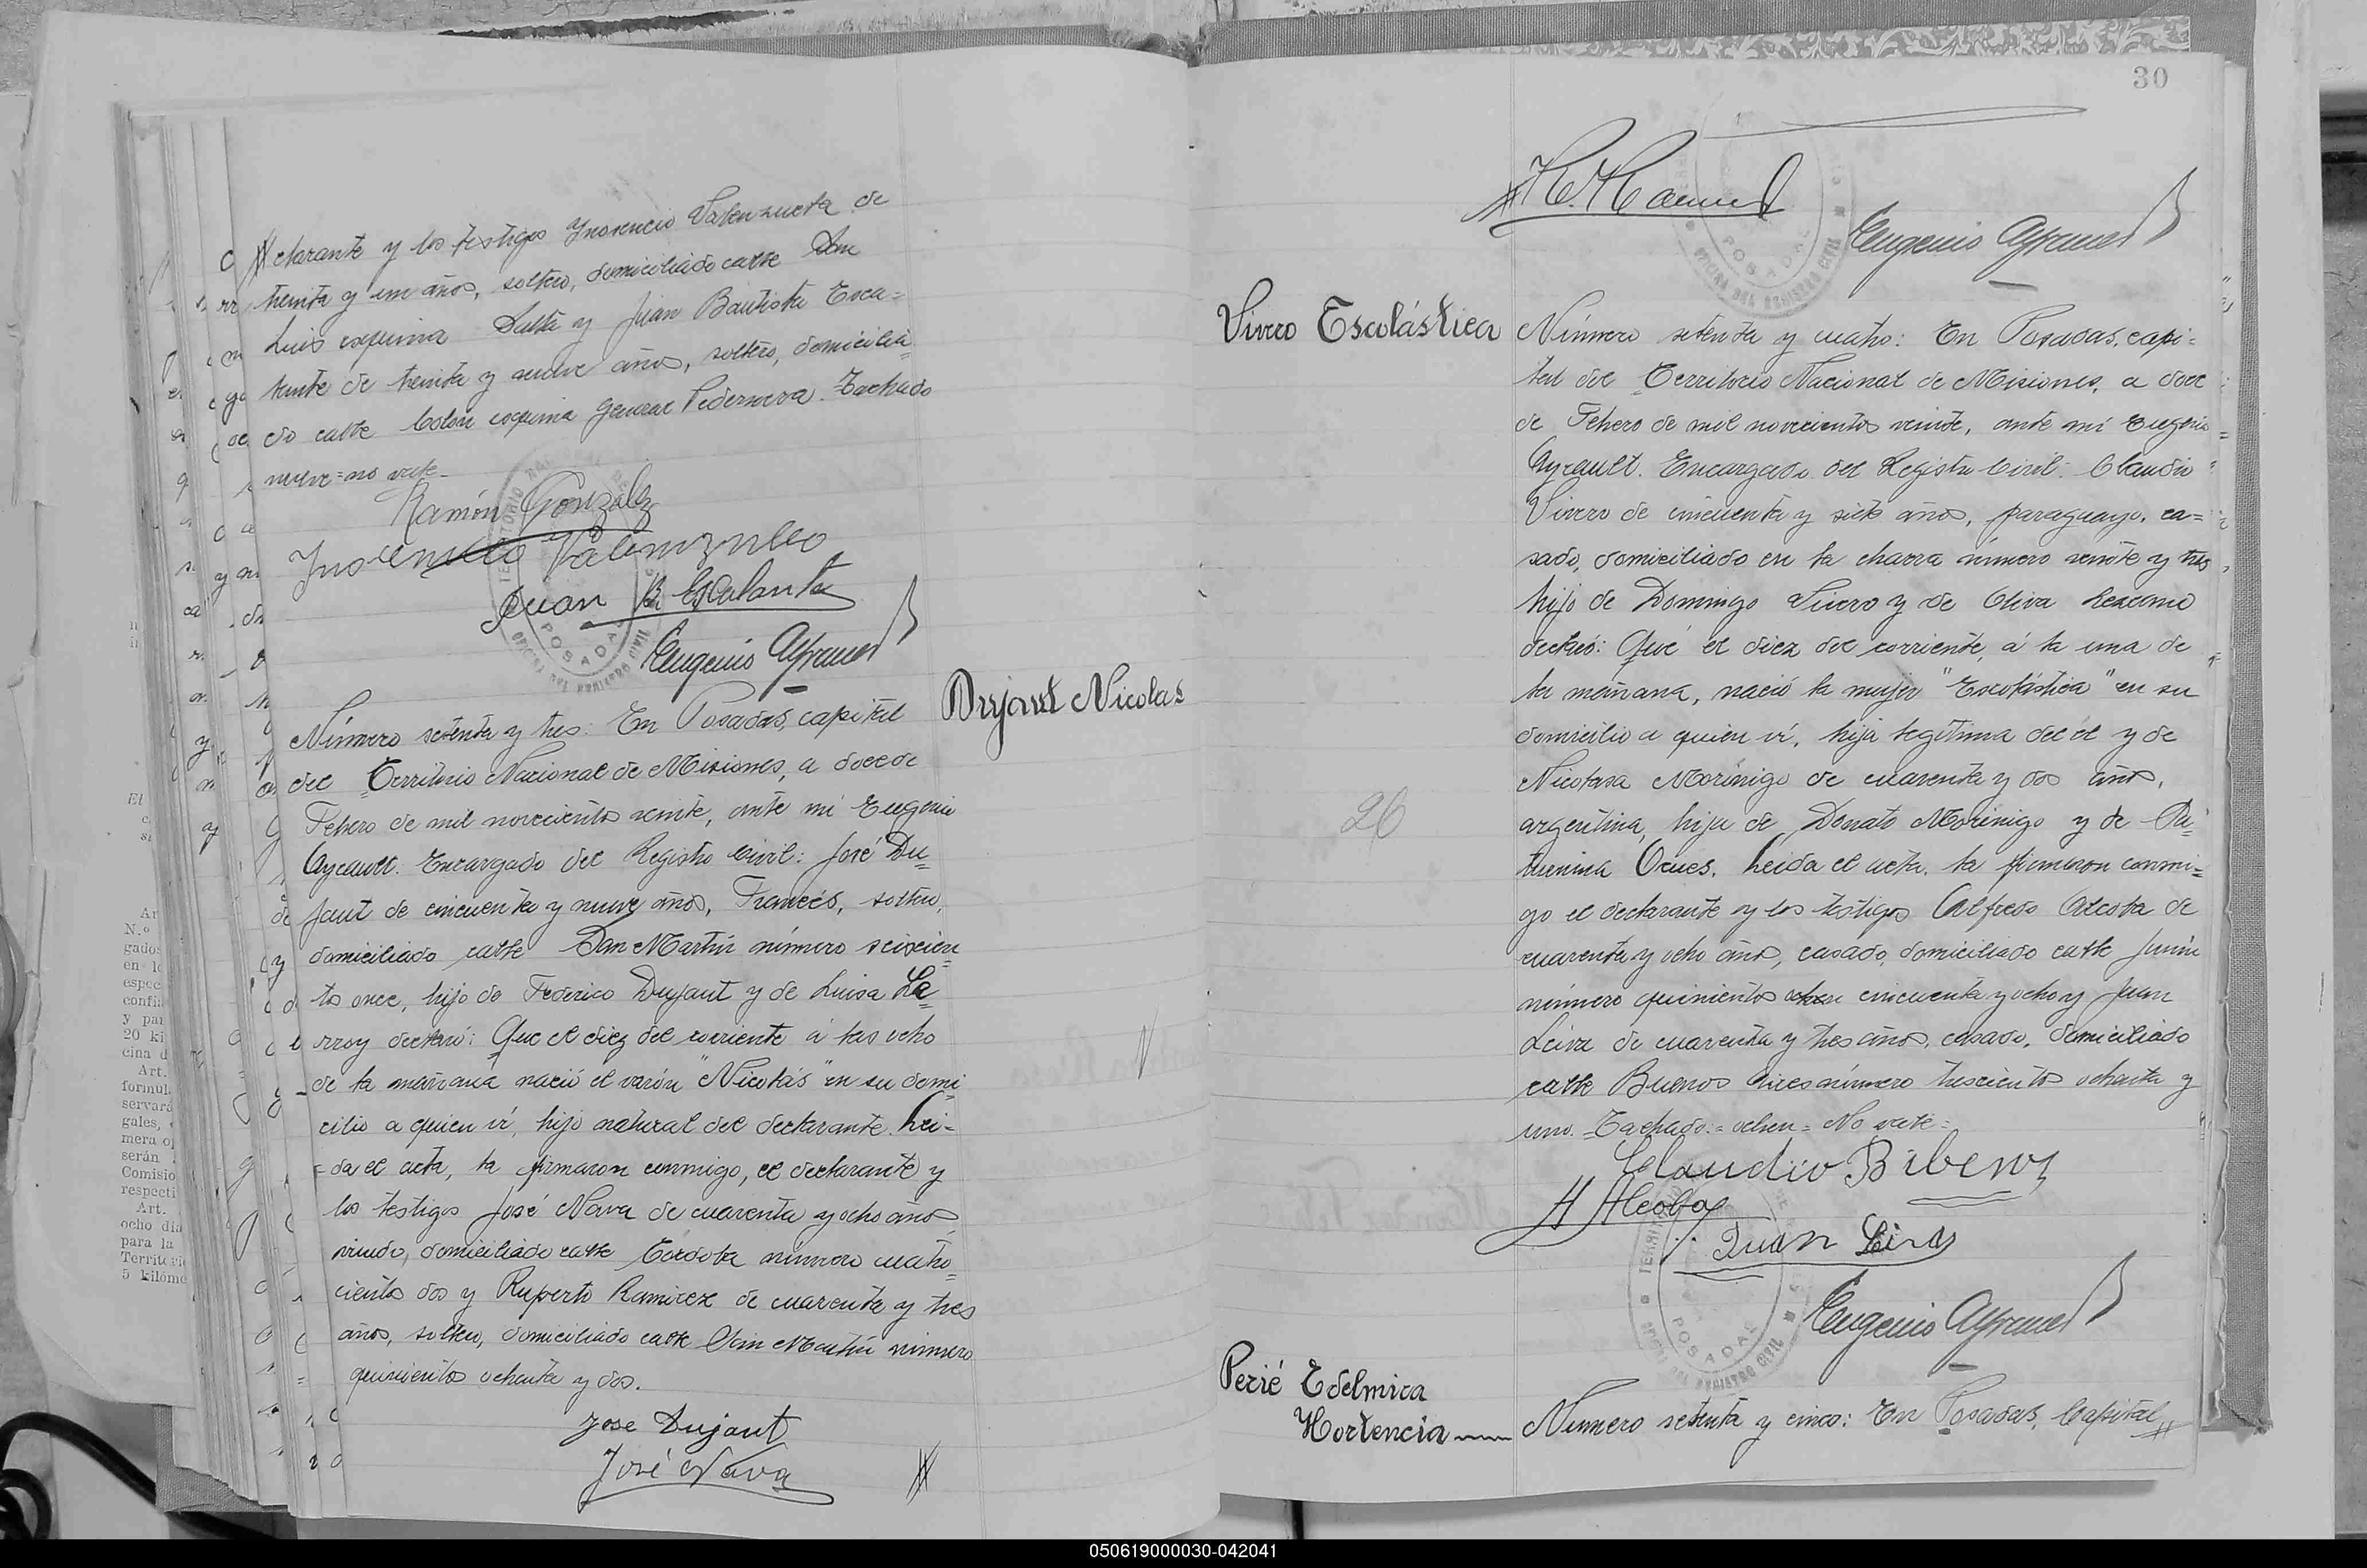 clarante y los testigos Ynosencio Valenzuela de
treinta y un años, soltero, domiciliado calle San
Luis esquina Salta y Juan Bautista Esca=
lante de treinta y nueve años, soltero, domicilia
do calle Colón esquina General Pedernera. Tachado
nueve=no vale=
Ramón Gonzalez
Ynosencio Valenzuelo
Juan B Escalante
Eugenio Ayrault
Dujaut Nicolas
Número setenta y tres: En Posadas, capital
del Territorio Nacional de Misiones, a doce de
Febero de mil novecientos veinte, ante mi Eugenio
Ayrault. Encargado del Registro Civil: José Du=
jaut de cincuenta y nueve años, Francés, soltero,
domiciliado calle San Martín número seiscien=
tos once, hijo de Federico Dujaut y de Luisa La=
rroy declaró: Que el diez del corriente á las ocho
de la mañana nació el varón "Nicolás" en su domi=
cilio a quien ví, hijo natural del declarante. Lei=
=da el acta, la firmaron conmigo, el declarante y
los testigos José Nava de cuarenta y ocho años
viudo, domiciliado calle Córdoba número cuatro=
cientos dos y Ruperto Ramirez de cuarenta y tres
años, soltero, domiciliado calle San Martín número
quinientos ochenta y dos.
Jose Dujaut
José Nava
30
Eugenio Ayrault
Vivero Escolástica
Número setenta y cuatro: En Posadas, capi=
tal del Territorio Nacional de Misiones, a doce
de Febero de mil novecientos veinte, ante mi Eugenio
Ayrault. Encargado del Registro Civil: Claudio
Vivero de cincuenta y siete años, paraguayo, ca=
sado, domiciliado en la chacra número veinte y tres
hijo de Domingo Vivero y de Oliva Lezcano
declaró: Qué el diez del corriente, á la una de
la mañana, nació la mujer "Escolástica" en su
domicilio a quien ví, hija legítima del él y de
Nicolasa Morínigo de cuarenta y dos años,
argentina, hija de Donato Morinigo y de Sa=
turnina Orues. Leida el acta, la firmaron conmi=
go el declarante y los testigos Alfredo Alcoba de
cuarenta y ocho años, casado, domiciliado calle Junín
número quinientos ochen cincuenta y ocho y Juan
Leiva de cuarenta y tres años, casado, domiciliado
calle Buenos Aires número trescientos ochenta y
uno. Tachado:=ochen= No vale=
Claudio Biberos
A Alcoba
Juan Leiva
Eugenio Ayrault
26
Perié Edelmira
Hortencia
Número setenta y cinco: En Posadas, Capital
TERRITORIO
POSADAS
OFICINA DEL REGISTRO CIVIL
El
Ar
N.º
gados
en lo
espec
confi
y par
20 ki
cina d
Art.
formul
servará
gales,
mera o
serán
Comisio
respecti
Art.
ocho día
para la
Territori
5 kilóme
050619000030-042041